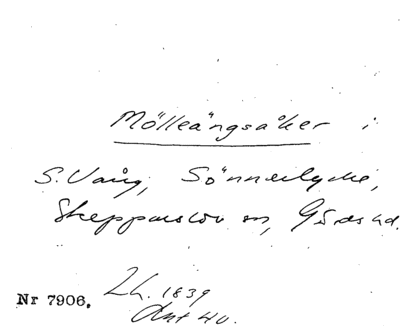 Mölleängsåker i
S. Vång, Sönnerlycke,
Skepparslöv sn, Gärds hd.
Nr 7906. Lh. 1839
Akt 40.